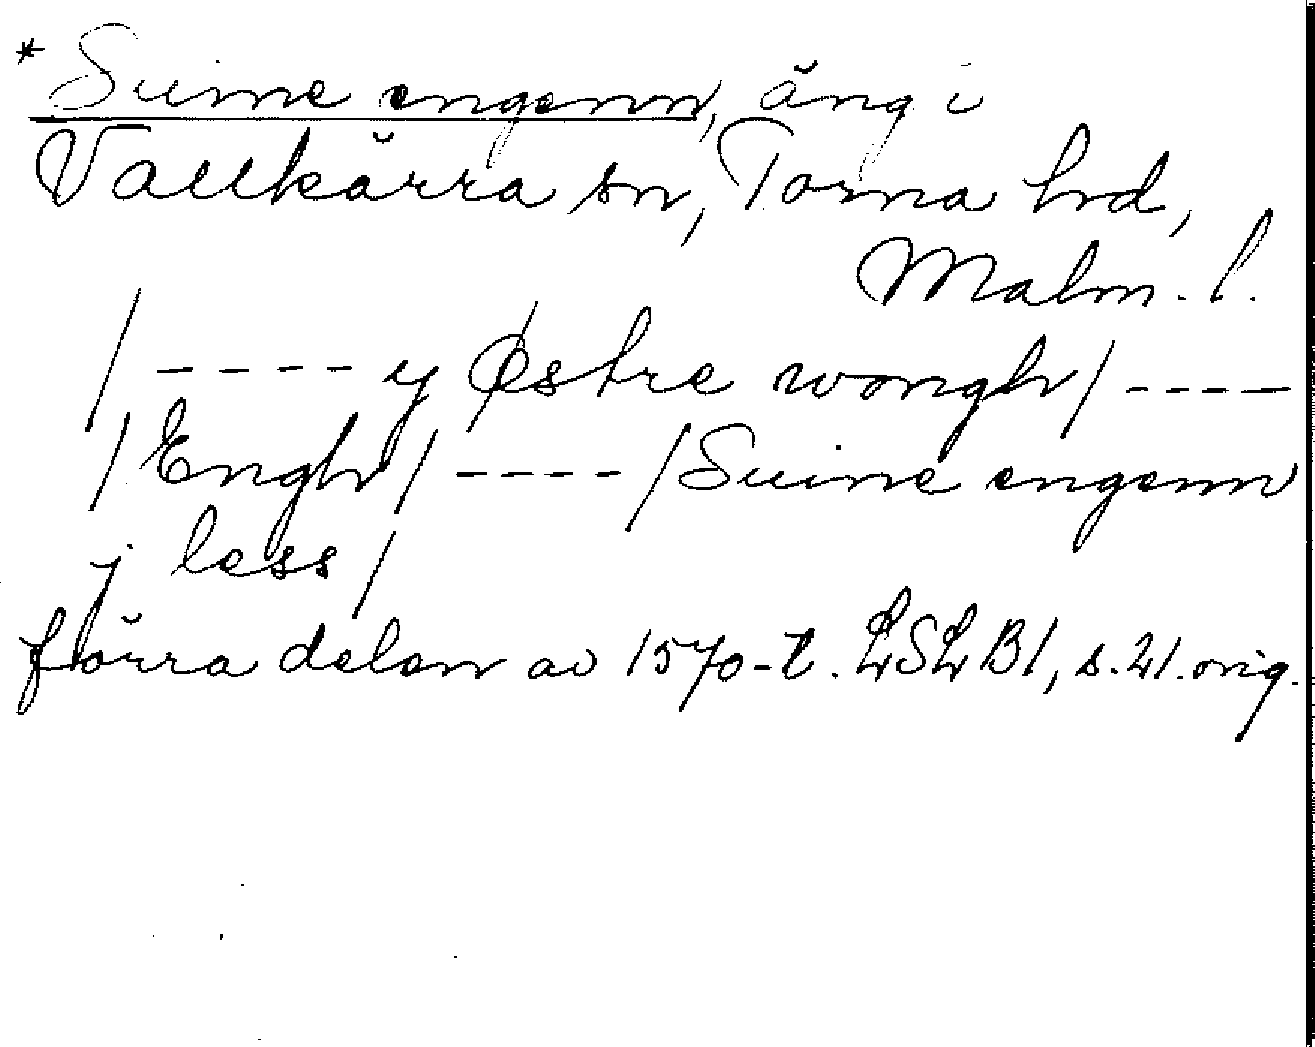 *Suine engenn, äng i
Vallkärra sn, Torna hrd,
Malm. l.
/ ---- y Østre wongh/ ----
/Engh/ ---- /Suine engenn
j less/
förra delen av 1570-t. LSLB1, s. 21. orig.